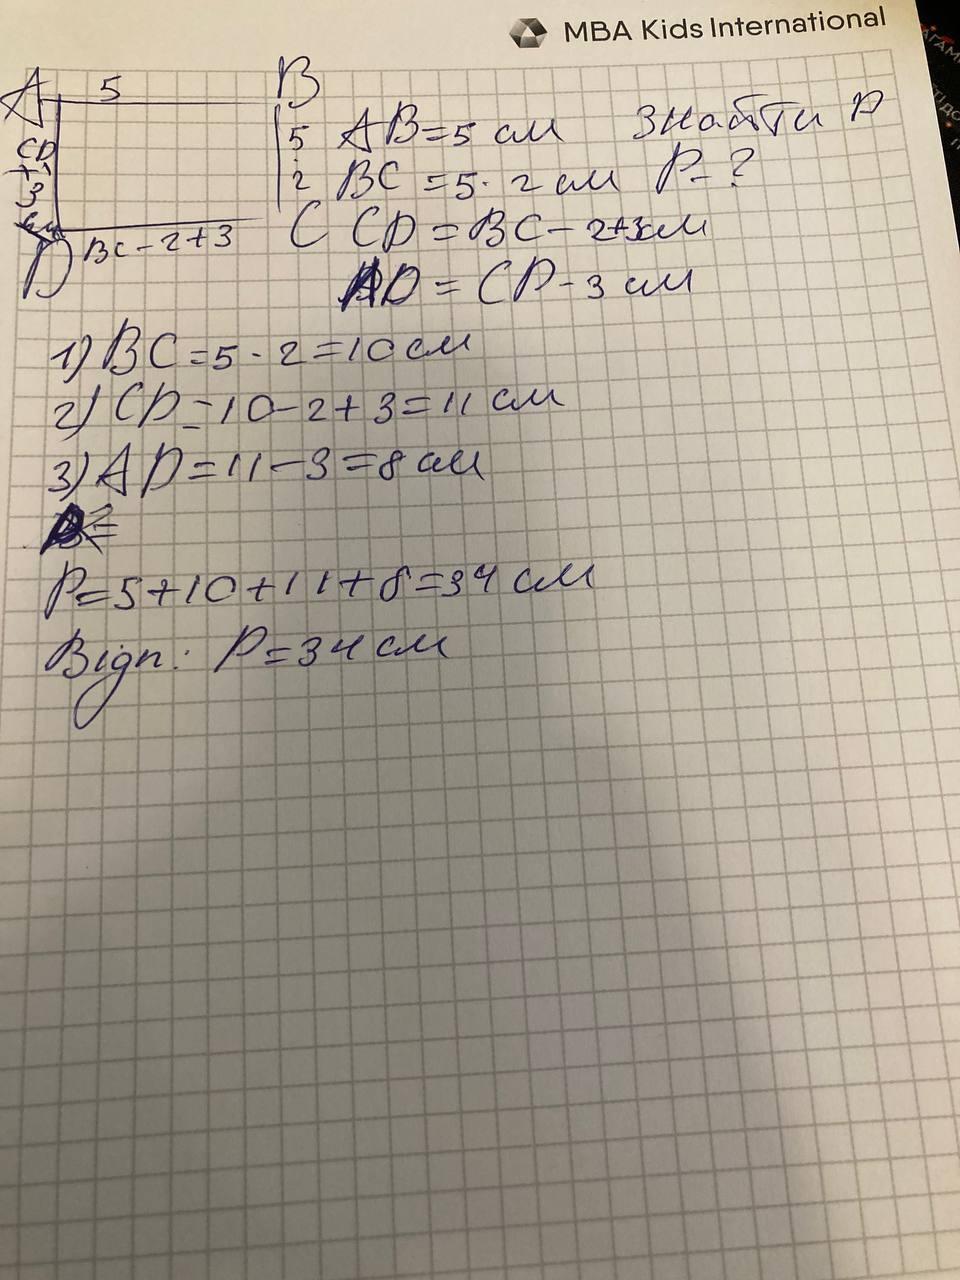 MBA Kids International
A 5 B
5 AB=5 см знайти P
CD
+
3
2 BC =5·2см P-?
C CD=BC-2+3см
D BC-2+3
AD=CD-3см
1) BC=5·2=10см
2) CD=10-2+3=11 см
3) AD=11-3=8см
P=5+10+11+8=34 см
Відп: P=34см